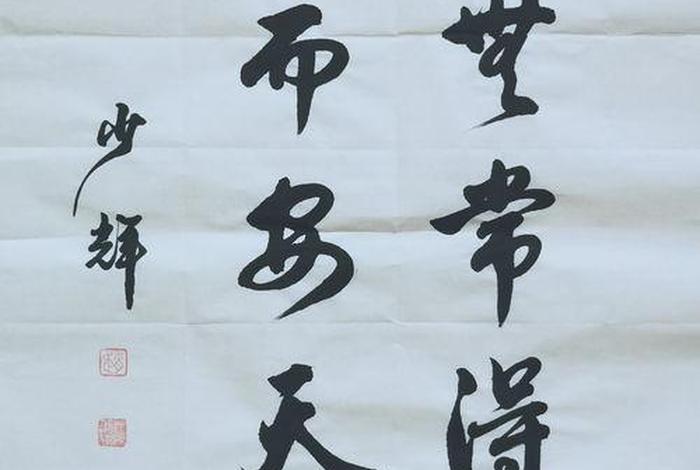 無常得
而安天
少輝